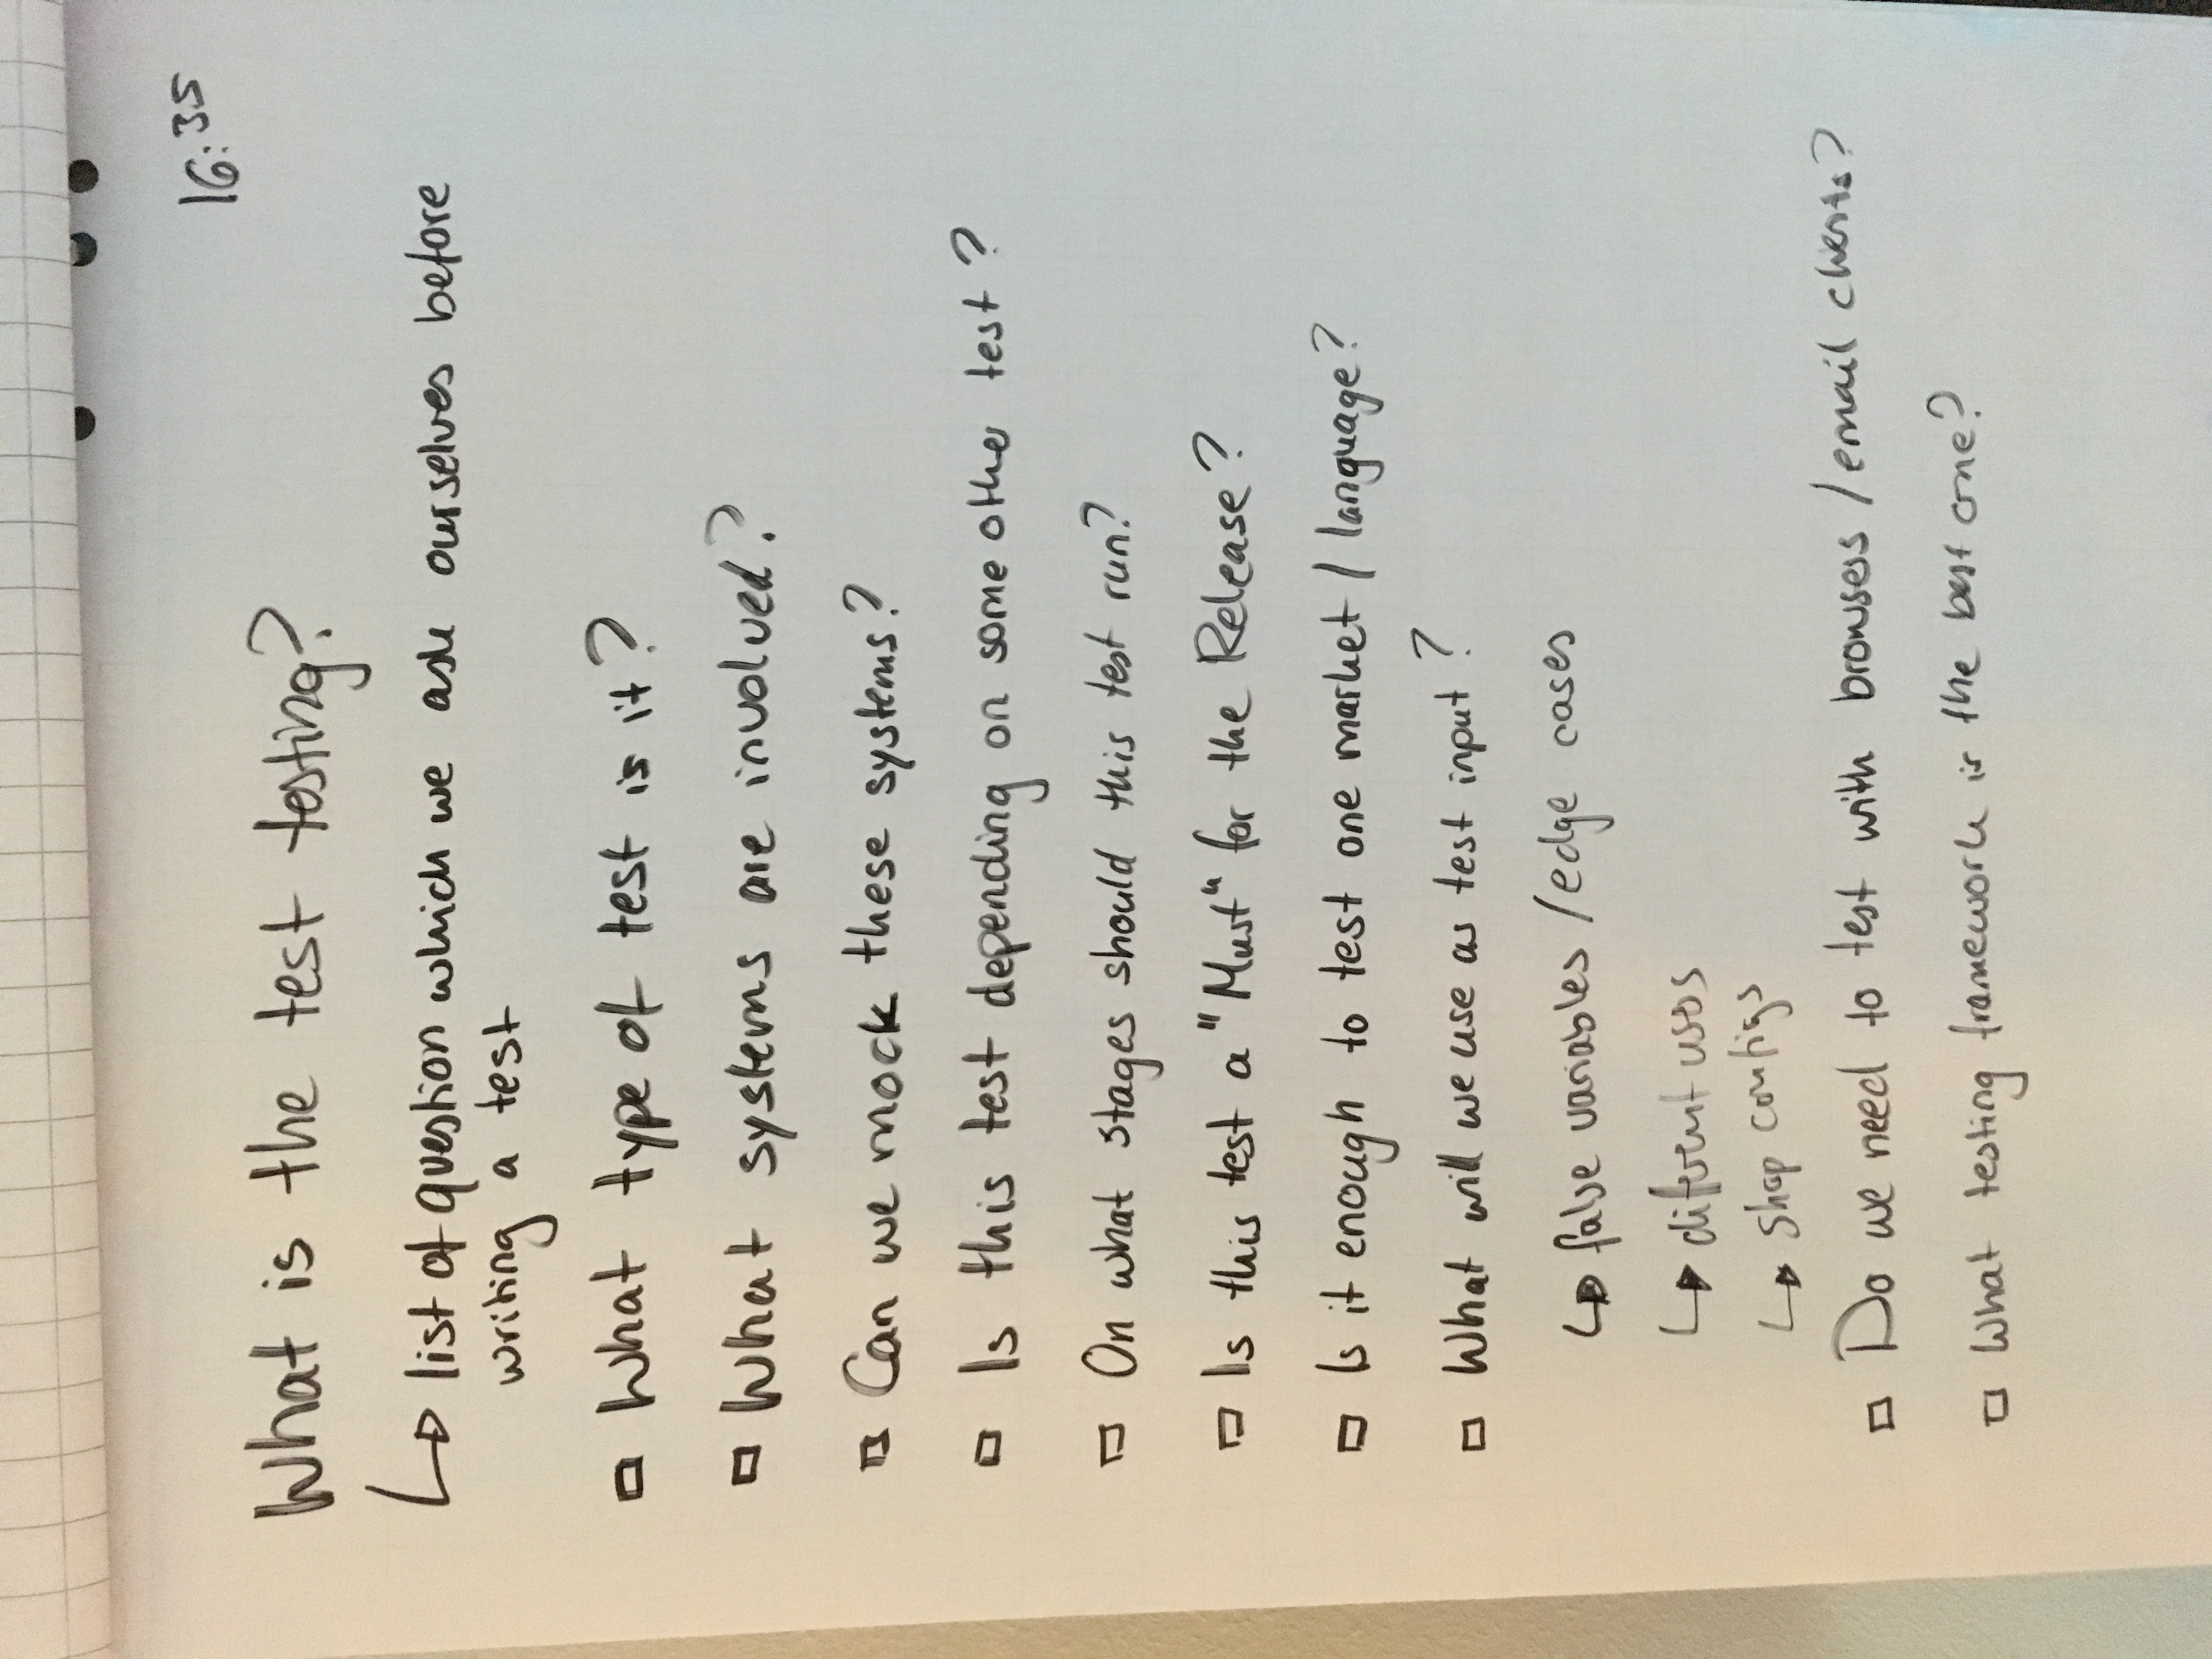 16:35
What is the test testing?
↳ list of question which we ask ourselves before
writing a test
□ What type of test is it?
□ What systems are involved?
□ Can we mock these systems?
□ Is this test depending on some other test?
□ On what stages should this test run?
□ Is this test a "Must" for the Release?
□ Is it enough to test one market / language?
□ What will we use as test input?
↳ false variables / edge cases
↳ different
↳ shop configs
□ Do we need to test with browses / email clients?
□ What testing framework is the best one?